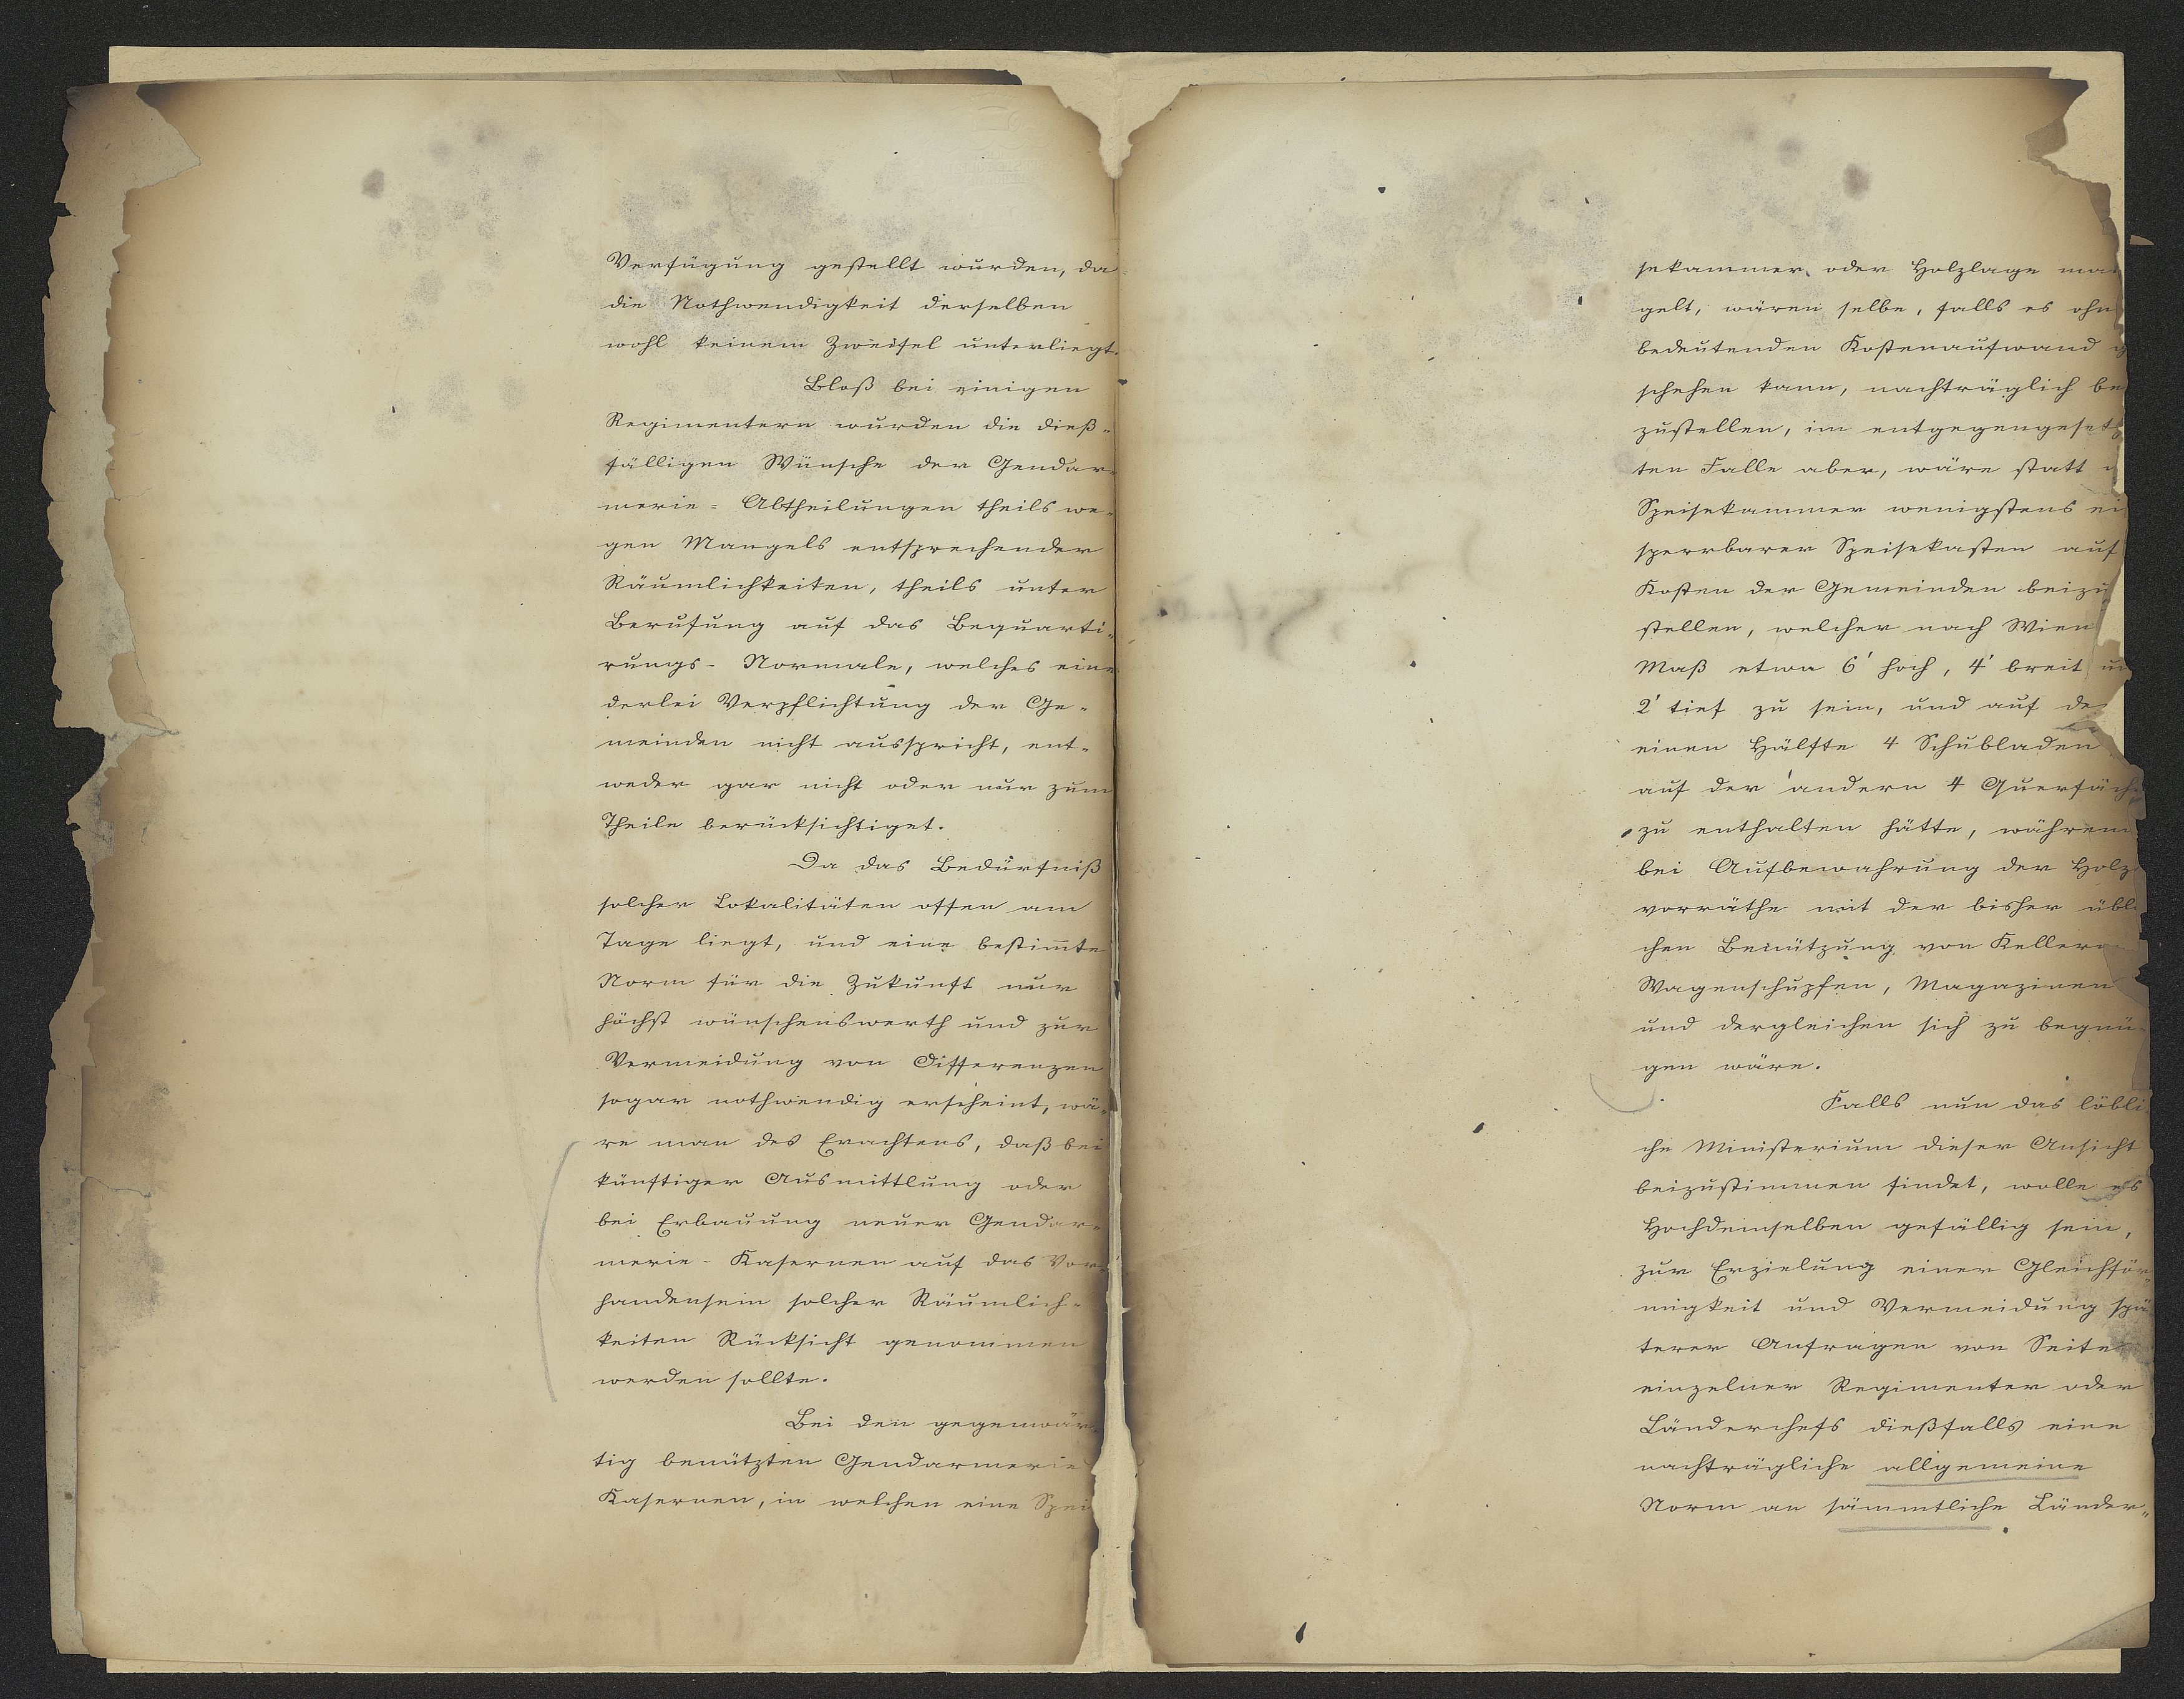 Verfügung gestellt wurden, da
die Nothwendigkeit derselben
wohl keinem Zweifel unterliegt.
Bloß bei einigen
Regimentern wurden die dieß-
fälligen Wünsche der Gendar-
merie-Abtheilungen theils we-
gen Mangels entsprechender
Räumlichkeiten, theils unter
Berufung auf das Bequarti-
rungs-Normale, welches eine
derlei Verpflichtung der Ge-
meinden nicht ausspricht, ent-
weder gar nicht oder nur zum
Theile berücksichtiget.
Da das Bedürfniß
solcher Lokalitäten offen am
Tage liegt, und eine bestim̄te
Norm für die Zukunft nur
höchst wünschenswerth und zur
Vermeidung von Differenzen
sogar nothwendig erscheint, wä-
re man des Erachtens, daß bei
künftiger Ausmittlung oder
bei Erbauung neuer Gendar-
merie-Kasernen auf das Vor-
handensein solcher Räumlich-
keiten Rücksicht genommen
werden sollte.
Bei den gegenwär-
tig benützten Gendarmerie
Kasernen, in welchen eine Spei
sekammer oder Holzlage man
gelt, wären selbe, falls es ohn
bedeutenden Kostenaufwand g
schehen kann, nachträglich bei
zustellen, im entgegengesetz
ten Falle aber, wäre statt d
Speisekammer wenigstens ein
sperrbarer Speisekasten auf
Kosten der Gemeinden beizu
stellen, welcher nach Wien
Maß etwa 6' hoch, 4' breit un
2' tief zu sein, und auf der
einen Hälfte 4 Schubladen
auf der andern 4 Querfäch
zu enthalten hätte, während
bei Aufbewahrung der Holz-
vorräthe mit der bisher übli
chen Benützung von Kellern
Wagenschupfen, Magazinen
und dergleichen sich zu begnü-
gen wäre.
Falls nun das löbli
che Ministerium dieser Ansicht
beizustimmen findet, wolle es
Hochdemselben gefällig sein,
zur Erzielung einer Gleichför-
migkeit und Vermeidung spä
terer Anfragen von Seite
einzelner Regimenter oder
Länderchefs dießfalls eine
nachträgliche allgemeine
Norm an sämmtliche Länder-